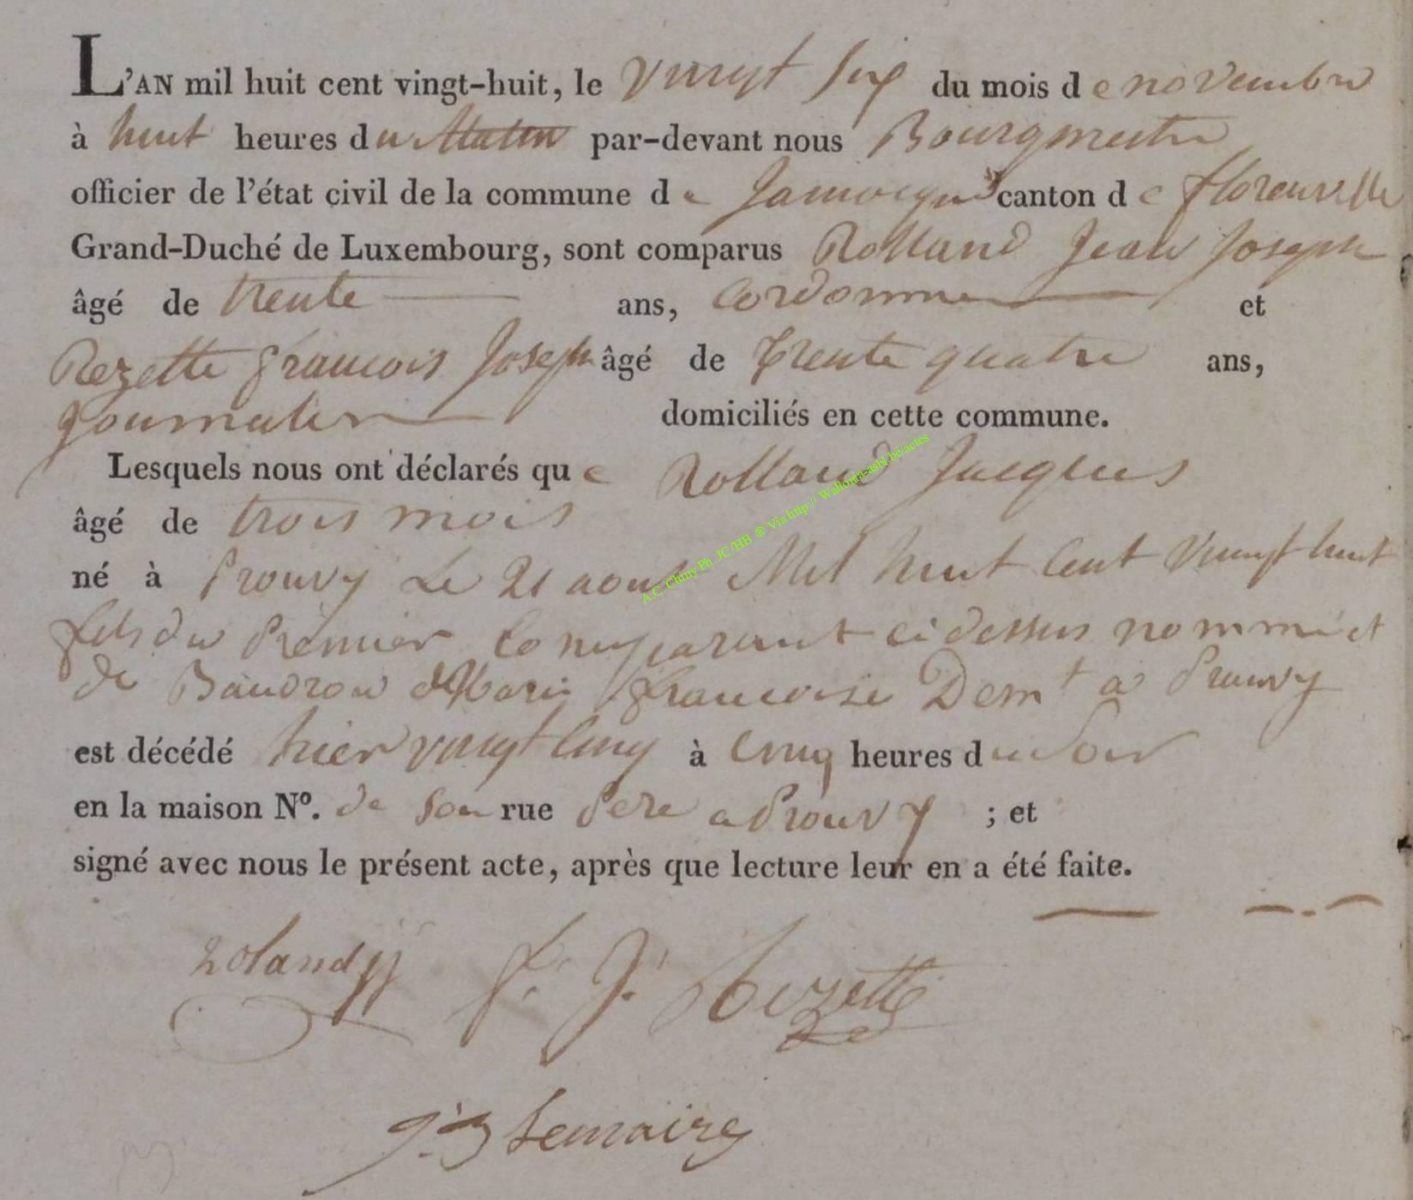 L'AN mil huit cent vingt-huit, le vingt six du mois de novembre
à huit heures du Matin par-devant nous Bourgmestre
officier de l'état civil de la commune de Jamoigne canton de florenville
Grand-Duché de Luxembourg, sont comparus Rolland Jean Joseph
âgé de trente ans, Cordonnier et
Rezette francois Joseph âgé de trente quatre ans,
Journalier domiciliés en cette commune.
Lesquels nous ont déclarés que Rolland Jacques
âgé de trois mois
né à Prouvy Le 21 aout Mil huit Cent vingt huit
fils du Premier Comparant ci dessus nommé et
de Baudrou Marie francoise Demt a Prouvy
est décédé hier vingt Cinq à Cinq heures du Soir
en la maison No. de Son rue Pere a Prouvy ; et
signé avec nous le présent acte, après que lecture leur en a été faite.
rolandjj F. J. Rezette
J. B Lemaire
A.C. Chiny Ph JC/HB ® Via http://